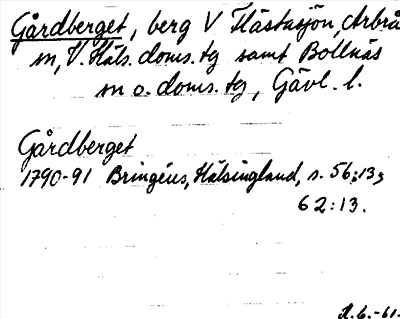 Gårdberget, berg V Flästasjön, Arbrå
sn, V. Häls. doms. tg samt Bollnäs
sn o. doms. tg, Gävl. l.
Gårdberget
1790-91 Bringéus, Hälsingland, s. 56:13,
62:13.
6.-61.